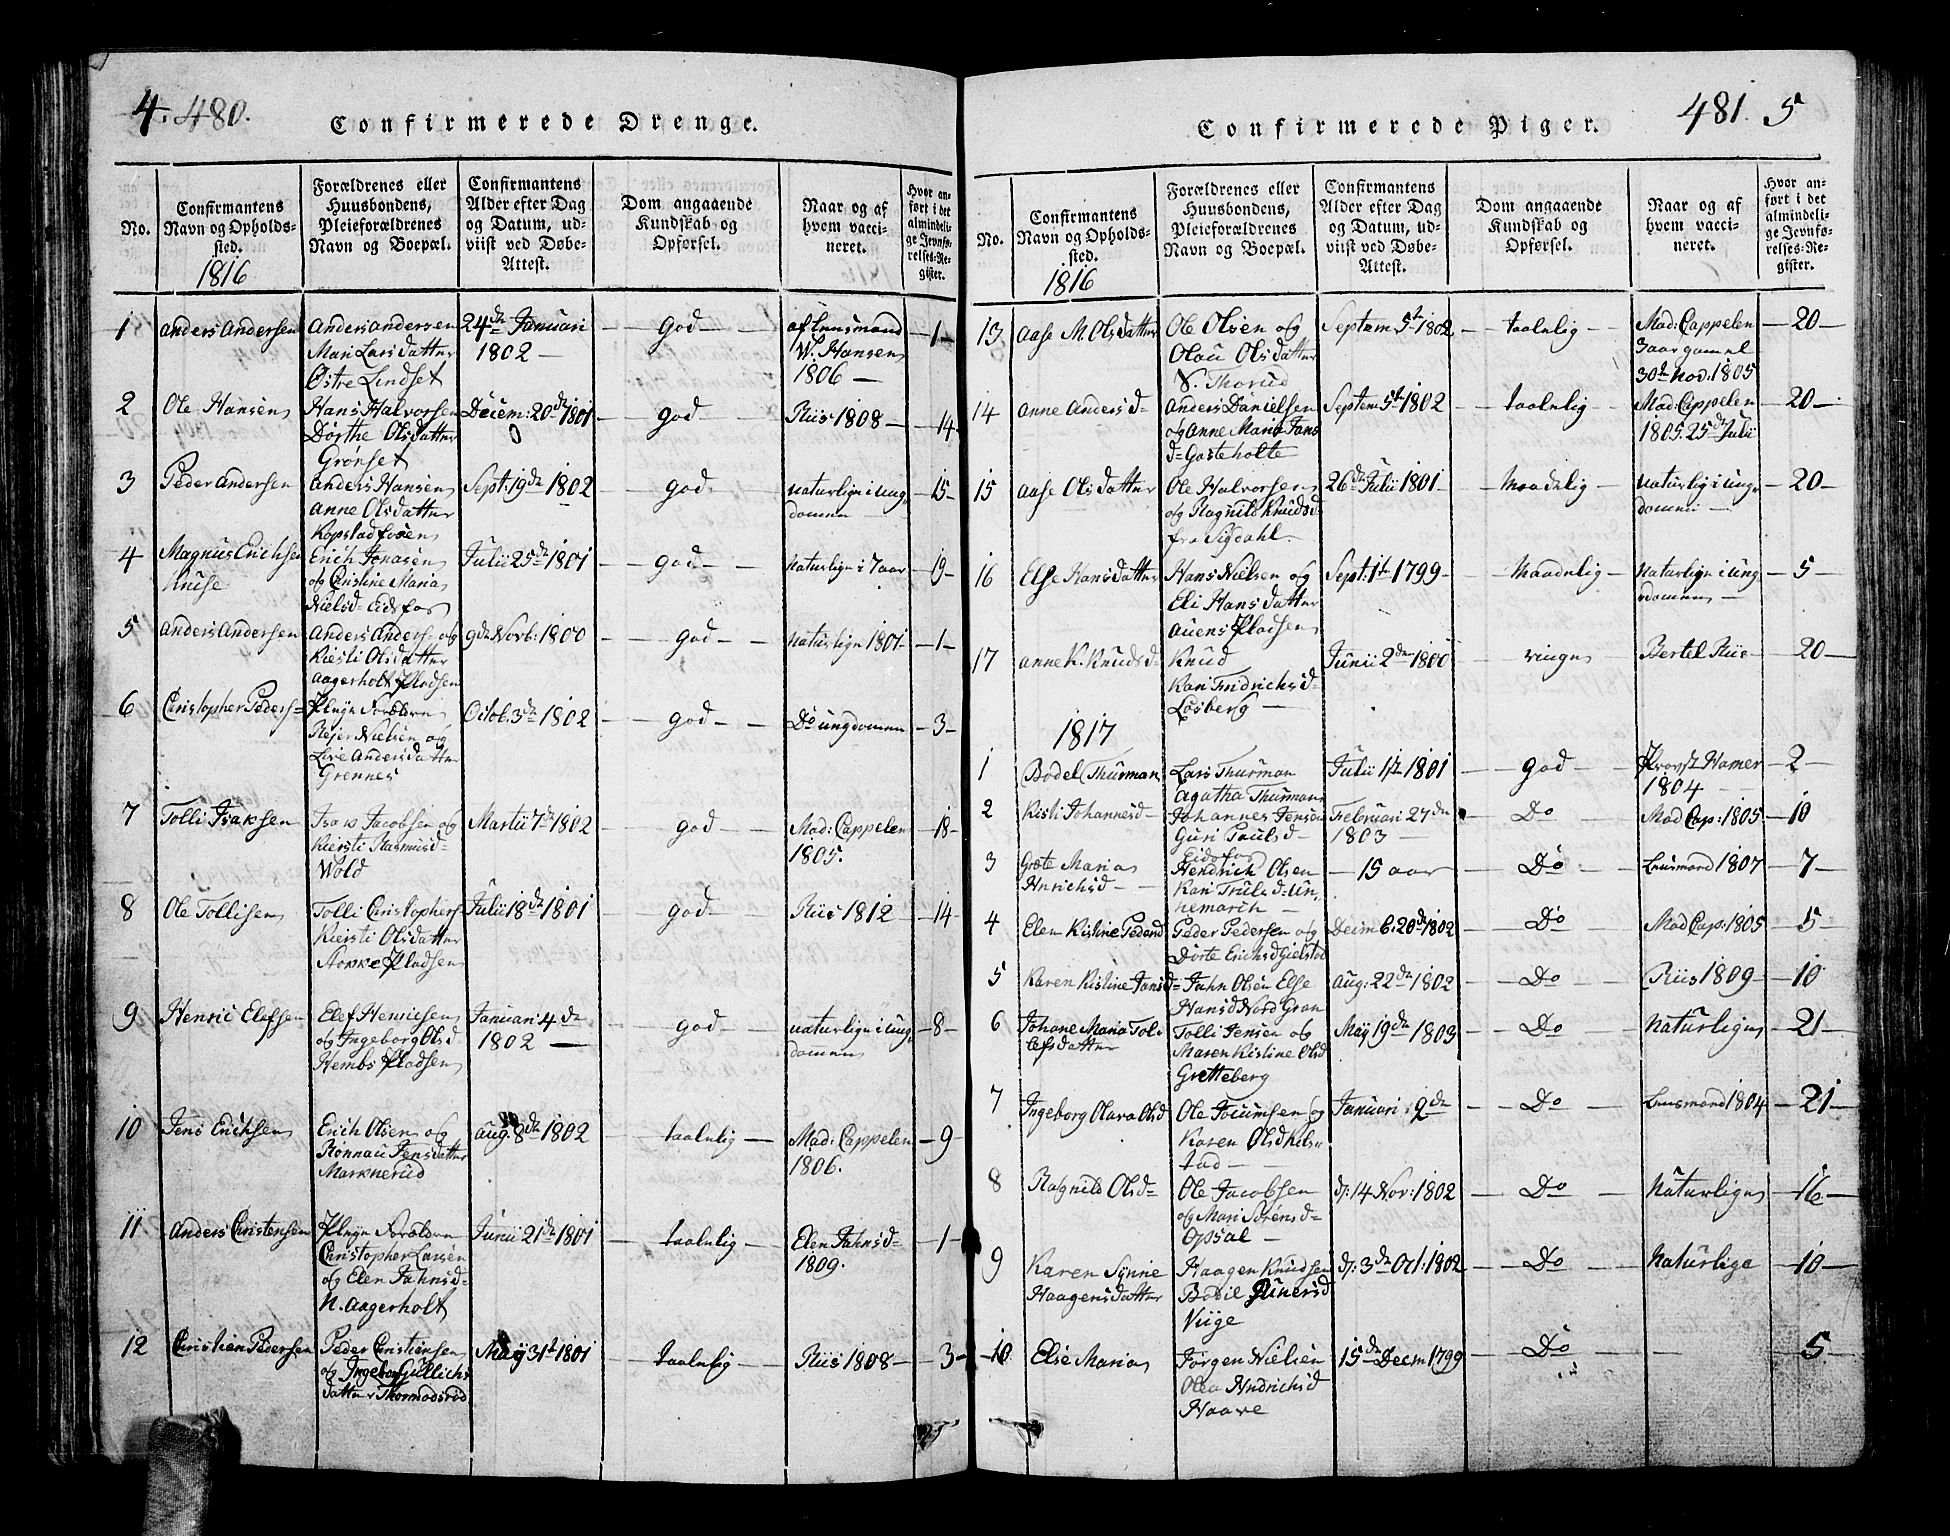 4. 480.
Confirmerede Drenge.
No.
Confirmantens
Navn og Opholds-
sted.
1816
Forældrenes eller
Huusbondens,
Pleieforældrenes
Navn og Boepæl.
Confirmantens
Alder efter Dag
og Datum, ud-
viist ved Døbe-
Attest.
Dom angaaende
Kundskab og
Opførsel.
Naar og af
hvem vacci-
neret.
Hvor an-
ført i det
almindeli-
ge Jevnfø-
relses-Re-
gister.
1 Anders Andersen
Anders Andersen
Mari Larsdatter
Østre Lindset
24de Januari
1802 —
— god —
af Lensmand
W. Hansen
1806 —
— 1 —
2 Ole Hansen
Hans Halvorsen
Dorthe Olsdatter
Grønset
Decem: 20de 1801
— god —
Riis 1808
— 14
3 Peder Andersen
Anders Hansen
Anne Olsdatter
Kopstadfosen
Sept: 19de 1802
— god —
naturlign i ung-
dommen
— 15 —
4 Magnus Erichsen
Kruse
Erich Jonasen
og Cristine Maria
Nielsd= Eidsfos
Julii 25de 1801
— god —
naturlign i 7 aar
— 19 —
5 Anders Andersen
Anders Anders= og
Kiesti Olsdatter
Aagerholt Pladsen
9de Novb: 1800
— god —
naturlign 1801
— 1 —
6 Christopher Peders=
Pleye Forældre
Rejer Nielsen og
Live Andersdatter
Grennes
Octob. 3de 1802
— god —
Do ungdommen
— 3 —
7 Tolli Isaksen
Isak Jacobsen og
Kiersti Rasmusd=
Wold
Martii 7de 1802
— god —
Mad: Cappelen
1805.
— 18 —
8 Ole Tollisen
Tolli Christophers
Kiersti Olsdatter
Pladsen
Julii 18de 1801
— god —
Riis 1812
— 14 —
9 Henric Elefsen
Elef Henricsen
og Ingeborg Olsd
Hembs Pladsen
Januari 4de
1802 —
— god —
naturlign i ung-
dommen
— 8 —
10 Jens Erichsen
Erich Olsen og
Rønnau Jensdatter
Marknerud
Aug. 8de 1802
— taalelig —
Mad: Cappelen
1806.
— 9
11 Anders Christensen
Pleye Forældre
Christopher Larsen
og Elen Jahnsd=
N. Aagerholt
Junii 21de 1801
— taalelig —
Elen Jahnsd=
1809.
— 1 —
12 Christien Pedersen
Peder Christiensen
og Ingebor Gullichs
datter Thormodsrød
Maij 31t 1801
— taalelig —
Riis 1808 —
3 —
481. 5
Confirmerede Piger.
No.
Confirmantens
Navn og Opholds-
sted.
1816
Forældrenes eller
Huusbondens,
Pleieforældrenes
Navn og Boepæl.
Confirmantens
Alder efter Dag
og Datum, ud-
viist ved Døbe-
Attest.
Dom angaaende
Kundskab og
Opførsel.
Naar og af
hvem vacci-
neret.
Hvor an-
ført i det
almindeli-
ge Jevnfø-
relses-Re-
gister.
13 Aase M. Olsdatter
Ole Olsen og
Olau Olsdatter
V. Thorud
Septem 5t 1802
— taalelig —
Mad: Cappelen
3 aar gamel
30t Nov: 1805
— 20 —
14 Anne Andersd=
Anders Danielsen
og Anne Maria Jans
d= Gasteholte
Septem 5t 1802
— taalelig —
Mad: Cappelen
1805. 25de Julii
— 20 —
15 Aase Olsdatter
Ole Halvorsen
og Ragnild Knudsd=
fra Sigdahl.
26de Julii 1801
— maadelig —
naturlig i ung-
dommen —
— 20 —
16 Else Hansdatter
Hans Nielsen og
Eli Hansdatter
Auens Pladsen
Sept: 1t 1799
— maadelig —
naturlign i ung-
dommen —
— 5 —
17 Anne K. Knudsd=
Knud
Kari Fredrichsd=
Løsberg —
Junii 2de 1800
— ringe
Bertel Riis —
20 —
1817
1 Bodel Thurman
Lars Thurman
Agatha Thurmann
Julii 1t 1801
— god —
Provst Hamer
1804 —
— 2 —
2 Kisti Johannesd=
Johannes Jensen
Guri Paulsd=
Eidsfos
Februari 27de
1803
— Do —
Mad Cap: 1805
— 10
3 Grete Maria
Hnrichsd —
Hendrich Olsen
Kari Trulsd= Un-
nemarch —
— 15 aar
— Do —
Lensmand 1807
— 7 —
4 Elen Kistine Pedersd
Peder Pedersen og
Dorte Erichsd Gielstad
Decemb: 20de 1802
— Do —
Mad Cap: 1805
— 5 —
5 Karen Kistine Jansd=
Jahn Olsen Else
Hansd Nord Gran
Aug: 22de 1802
— Do —
Riis 1809
— 10
6 Johane Maria Tol-
lefsdatter
Tolli Jensen og
Maren Kistine Olsd
Gretteberg
May 19de 1803
— Do —
Naturlign
— 21 —
7 Ingeborg Olava Olsd
Ole Jocumsen og
Karen Olsd Kils-
tad —
Januari 9de
— Do —
Lensmand 1804
— 21 —
8 Ragnild Olsd=
Ole Jacobsen
og Mari Sørensd=
Opsal —
d: 14 Nov: 1802
— Do —
Naturlign
— 16 —
9 Karen Synne
Haagensdatter
Haagen Knudsen
Bodil Gunersd
Viige
d: 3de Oct: 1802
— Do —
Naturlige
— 10 —
10 Else Maria
Jørgen Nielsen
Olea Hndrichsd
Haave
15de Decm 1799
— Do —
—
5.